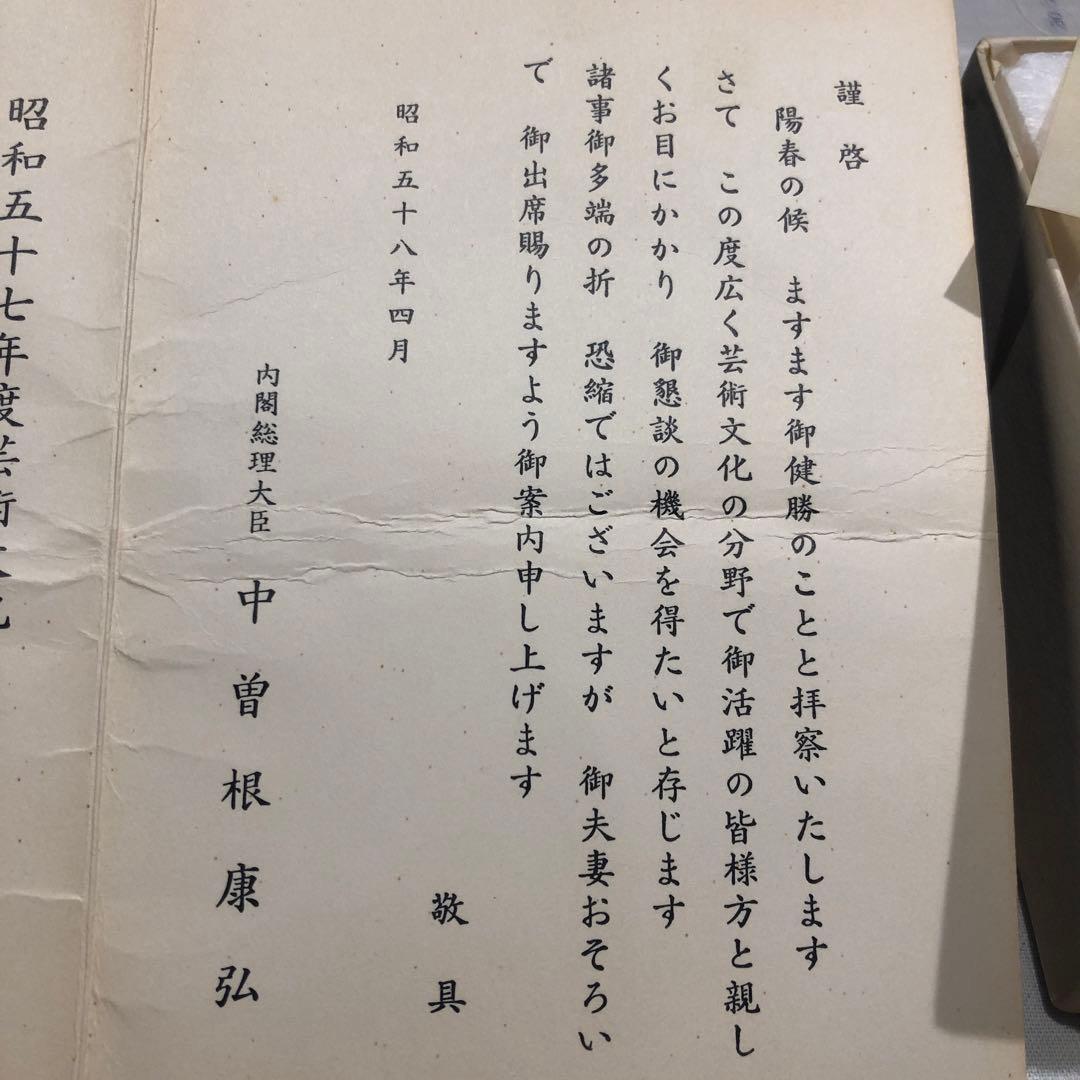 謹啓
陽春の候　ますます御健勝のことと拝察いたします
さて　この度広く芸術文化の分野で御活躍の皆様方と親し
くお目にかかり　御懇談の機会を得たいと存じます
諸事御多端の折　恐縮ではございますが　御夫妻おそろい
で　御出席賜りますよう御案内申し上げます
敬具
昭和五十八年四月
内閣総理大臣　中曽根康弘
昭和五十七年度芸術